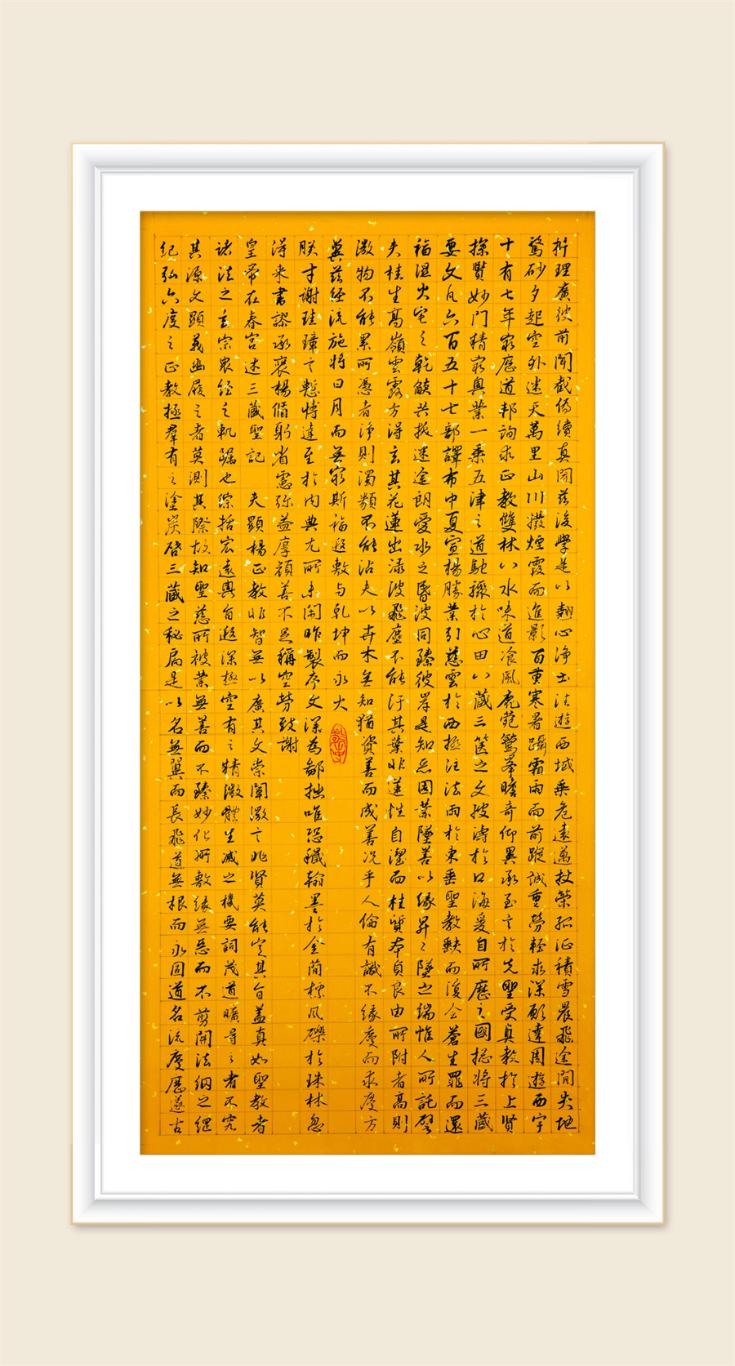 析理廣彼前聞截偽續真開茲後學是以翹心淨土法遊西域乘危遠邁杖策孤征積雪晨飛途間失地
驚砂夕起空外迷天萬里山川撥煙霞而進影百重寒暑躡霜雨而前蹤誠重勞輕求深願達周遊西宇
十有七年窮歷道邦詢求正教雙林八水味道飡風鹿菀鷲峯瞻奇仰異承至言於先聖受真教於上賢
探賾妙門精窮奧業一乘五律之道馳驟於心田八藏三篋之文波濤於口海爰自所歷之國摠將三藏
要文凡六百五十七部譯布中夏宣揚勝業引慈雲於西極注法雨於東垂聖教缺而復全蒼生罪而還
福濕火宅之乾燄共拔迷途朗愛水之昏波同臻彼岸是知惡因業墜善以緣昇〻墜之端惟人所託譬
夫桂生高嶺雲露方得泫其花蓮出淥波飛塵不能汙其葉非蓮性自潔而桂質本貞良由所附者高則
微物不能累所憑者淨則濁類不能沾夫以卉木無知猶資善而成善況乎人倫有識不緣慶而求慶方
冀茲經流施將日月而無窮斯福遐敷与乾坤而永大
朕才謝珪璋言慙博達至於內典尤所未閑昨製序文深為鄙拙唯恐穢翰墨於金簡標瓦礫於珠林忽
得來書謬承褒揚循躬省慮彌益厚顏善不足稱空勞致謝
皇帝在春宮述三藏聖記 夫顯揚正教非智無以廣其文崇闡微言非賢莫能定其旨蓋真如聖教者
諸法之玄宗眾經之軌躅也綜括宏遠奧旨遐深極空有之精微體生滅之機要詞茂道曠尋之者不究
其源文顯義幽履之者莫測其際故知聖慈所被業無善而不臻妙化所敷緣無惡而不剪開法網之綱
紀弘六度之正教拯群有之塗炭啓三藏之秘扃是以名無翼而長飛道無根而永固道名流慶歷遂古